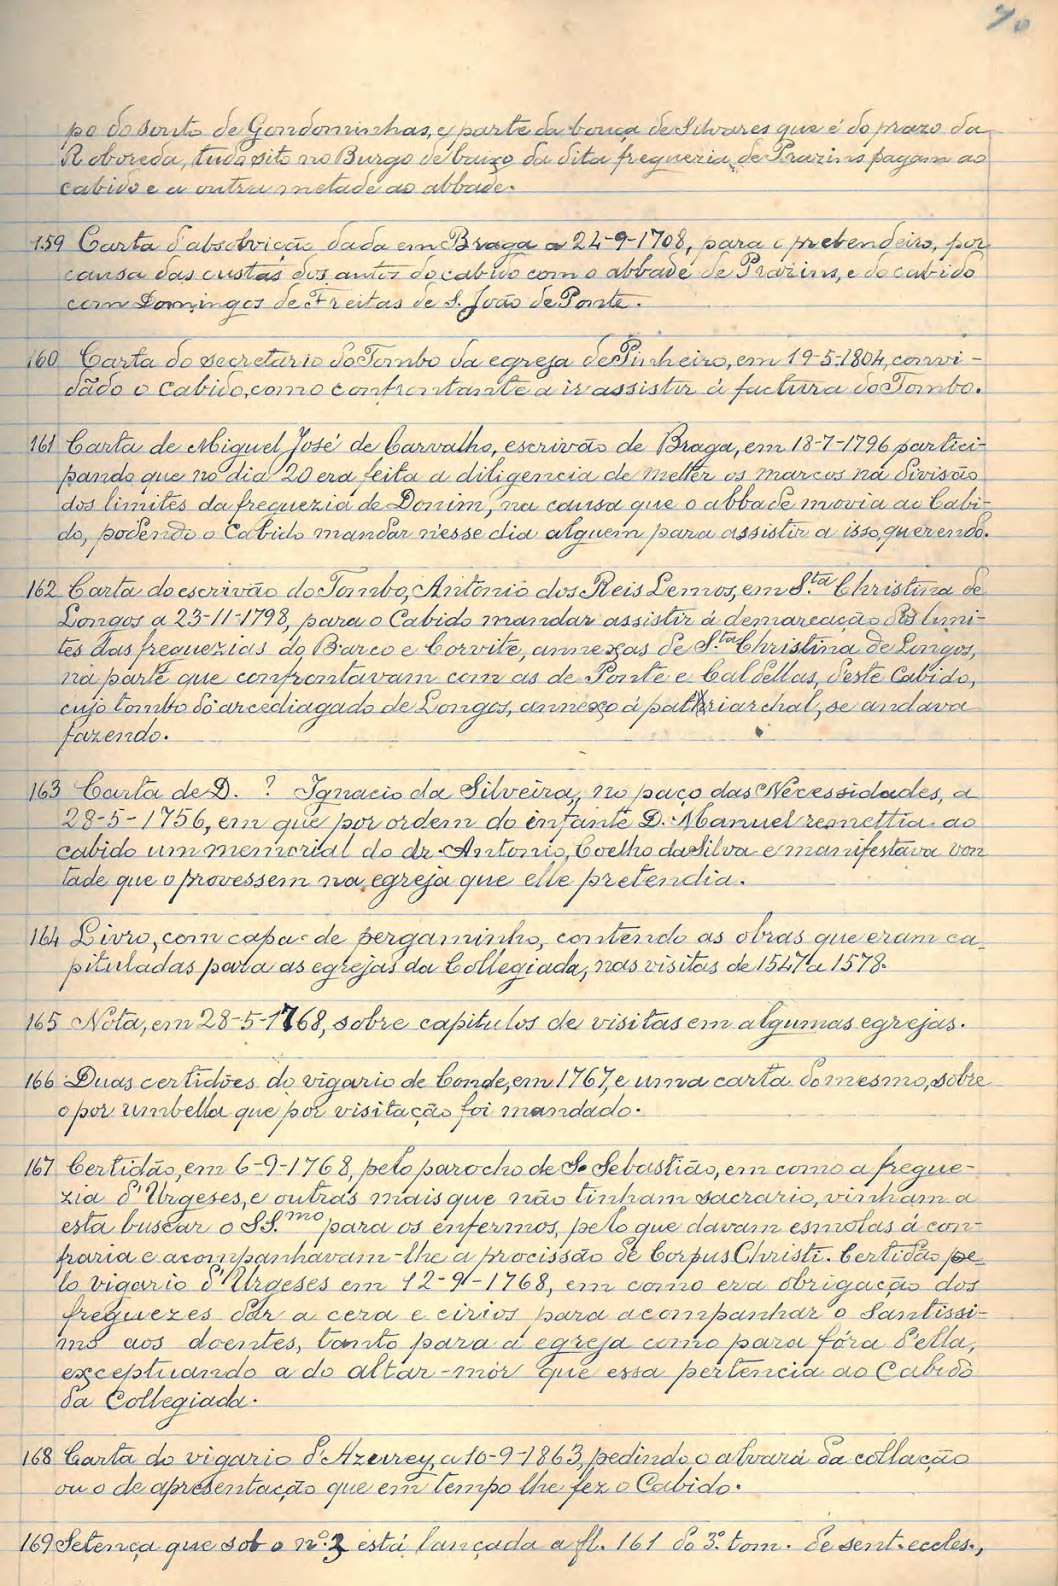 70
po do souto de Gondominhas, e parte da bouça de Silvares que é do prazo da
Roboreda, tudo sito no Burgo de baixo da dita freguezia de Prazins pagam ao
cabido e a outra metade ao abbade.
159 Carta d'absolvição dada em Braga a 24-9-1708, para o prebendeiro, por
causa das custas dos autos do cabido com o abbade de Prazins, e do cabido
com Domingos de Freitas de S. João de Ponte.
160 Carta do secretario do Tombo da egreja de Pinheiro, em 19-5-1804, convi-
dãdo o Cabido, como confrontante a ir assistir á factura do Tombo.
161 Carta de Miguel José de Carvalho, escrivão de Braga, em 18-7-1796 partici-
pando que no dia 20 era feita a diligencia de metter os marcos na divisão
dos limites da freguezia de Donim, na causa que o abbade movia ao Cabi-
do, podendo o Cabido mandar n'esse dia alguem para assistir a isso, querendo.
162 Carta do escrivão do Tombo, Antonio dos Reis Lemos, em S.ta Christina de
Longos a 23-11-1798, para o Cabido mandar assistir á demarcação dos limi-
tes das freguezias do Barco e Corvite, annexas de S.ta Christina de Longos,
na parte que confrontavam com as de Ponte e Caldellas, d'este Cabido,
cujo tombo do arcediagado de Longos, annexo á patriarchal, se andava
fazendo.
163 Carta de D. ? Ignacio da Silveira, no paço das Necessidades, a
28-5-1756, em que por ordem do infante D. Manuel remettia ao
cabido um memorial do dr. Antonio Coelho da Silva e manifestava von
tade que o provessem na egreja que elle pretendia.
164 Livro, com capa de pergaminho, contendo as obras que eram ca-
pituladas para as egrejas da Collegiada, nas visitas de 1547 a 1578.
165 Nota, em 28-5-1768, sobre capitulos de visitas em algumas egrejas.
166 Duas certidões do vigario de Conde, em 1767, e uma carta do mesmo, sobre
o por umbella que por visitação foi mandado.
167 Certidão, em 6-9-1768, pelo parocho de S. Sebastião, em como a fregue-
zia d'Urgeses, e outras mais que não tinham sacrario, vinham a
esta buscar o SS.mo para os enfermos, pelo que davam esmolas á con-
fraria e acompanhavam-lhe a procissão de Corpus Christi. Certidão pe-
lo vigario d'Urgeses em 12-9-1768, em como era obrigação dos
freguezes dar a cera e cirios para acompanhar o Santissi-
mo aos doentes, tanto para a egreja como para fóra d'ella,
exceptuando a do altar-mór que essa pertencia ao Cabido
da Collegiada.
168 Carta do vigario d'Azurey, a 10-9-1863, pedindo o alvará da collação
ou o de apresentação que em tempo lhe fez o Cabido.
169 Setença que sob o n.º 3 está lançada a fl. 161 do 3.º tom. de sent. eccles.,